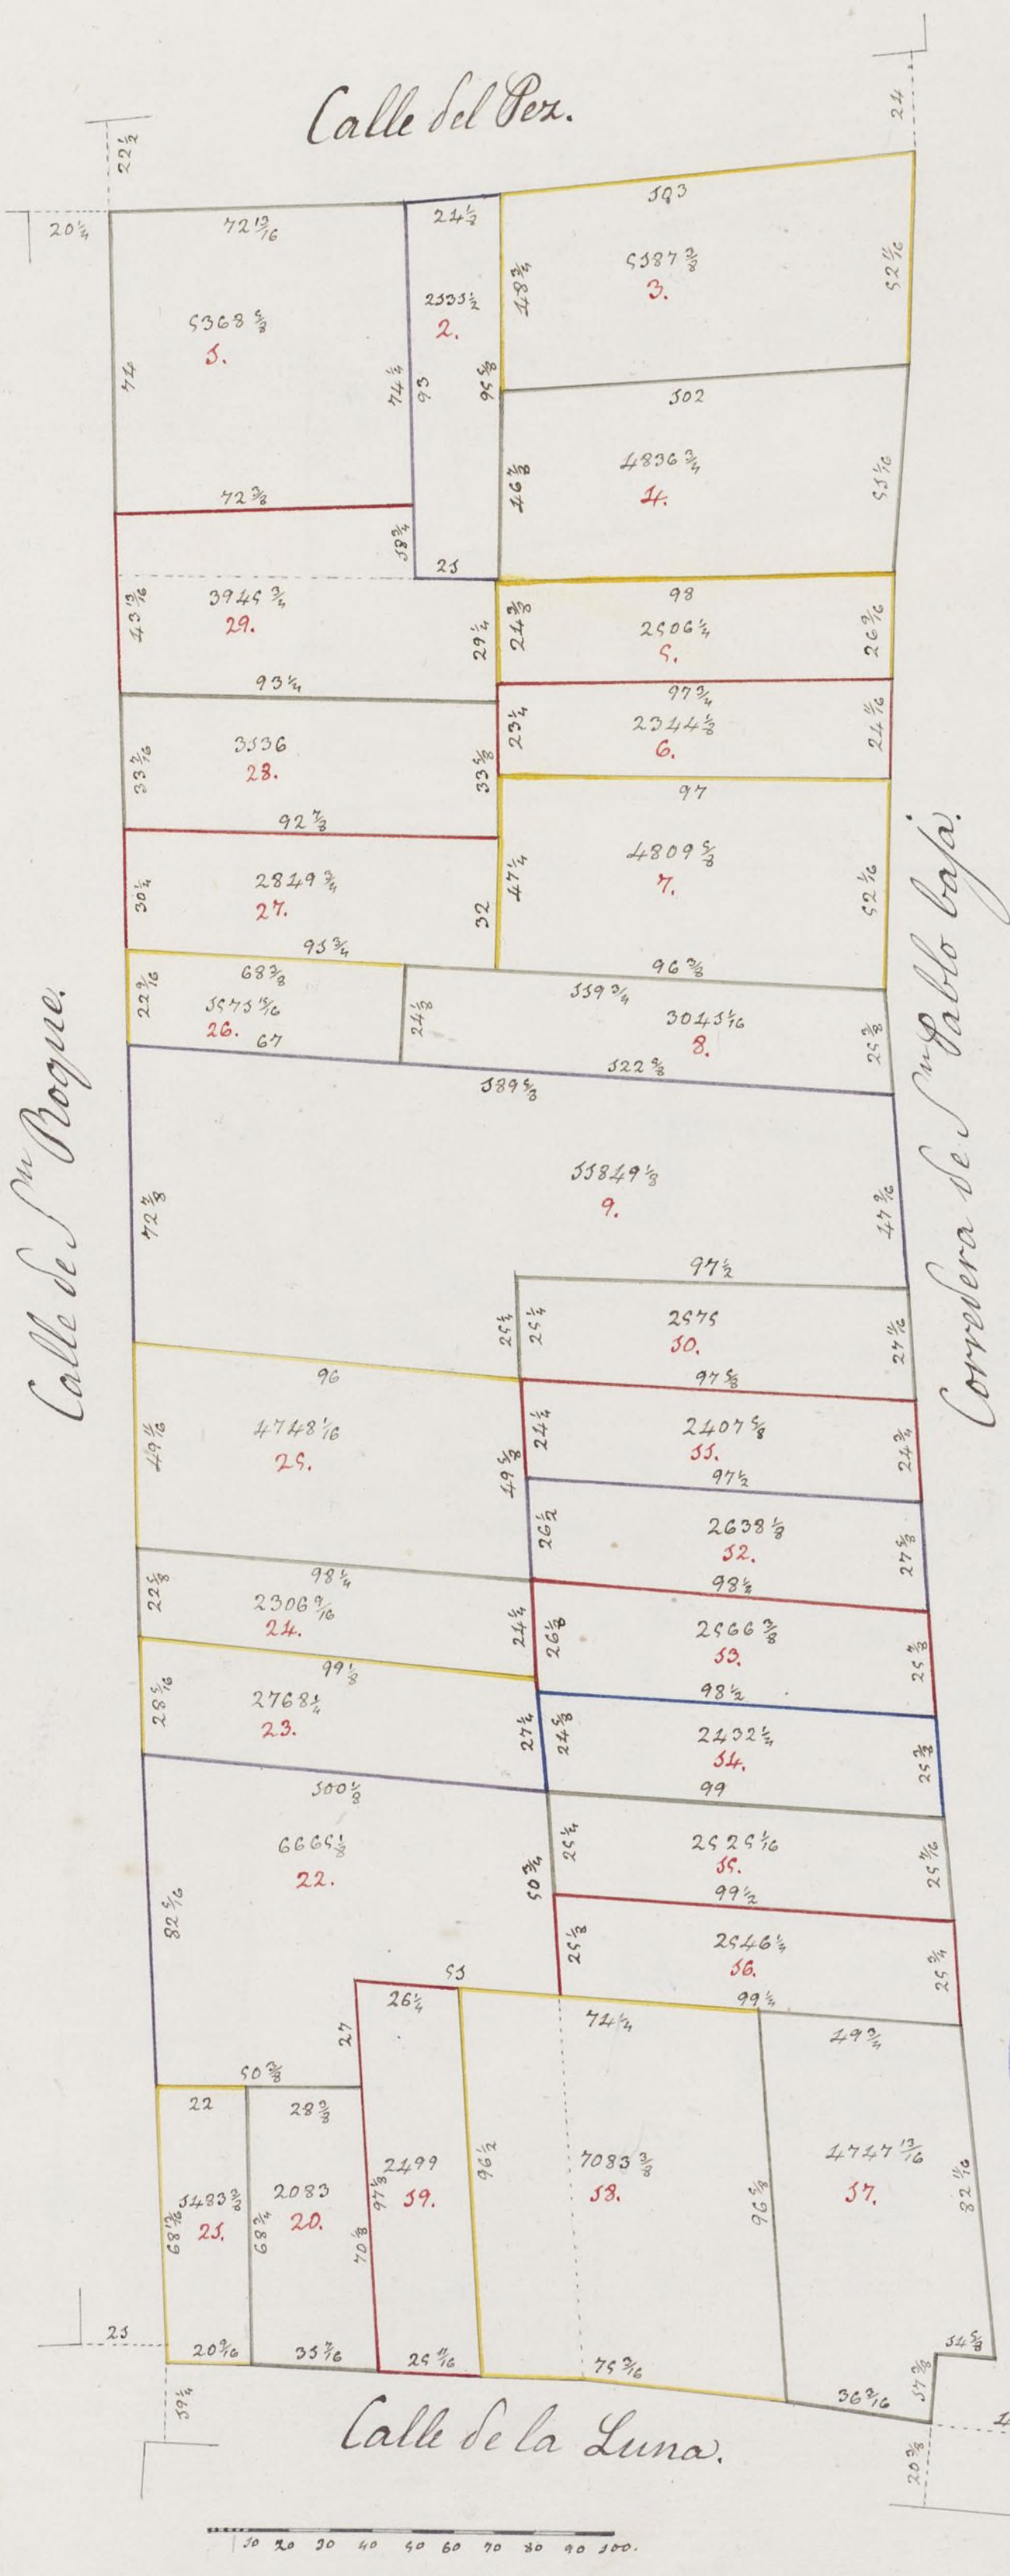 Calle del Pez.
22 1/2
24
20 1/4
72 13/16
24 1/2
103
5368 5/8
1.
74
74 1/4
2131 1/2
2.
93
95 5/8
48 3/4
5187 3/8
3.
52 11/16
102
4836 3/4
4.
46 7/8
51 1/16
72 3/8
18 3/4
21
43 13/16
3945 3/4
29.
29 1/4
93 1/4
98
24 3/8
2506 1/4
5.
26 3/16
97 3/4
23 1/4
2344 1/8
6.
24 11/16
33 7/16
3136
28.
33 5/8
92 7/8
97
47 1/4
4809 5/8
7.
52 1/16
96 3/8
30 1/4
2849 3/4
27.
32
91 3/4
68 3/8
22 9/16
1571 15/16
26.
67
24 1/8
119 3/4
3041 1/16
8.
25 3/8
122 5/8
189 5/8
Calle de Sn Roque.
Corredera de Sn Pablo baja.
72 7/8
11849 1/8
9.
47 3/16
97 1/2
25 1/4
25 1/4
2575
10.
27 11/16
97 5/8
96
49 11/16
4748 1/16
25.
49 5/8
24 1/4
2407 5/8
11.
24 3/4
97 1/2
26 1/2
2638 1/8
12.
27 5/8
98 1/2
98 1/4
22 5/8
2306 9/16
24.
24 1/4
26 1/8
2566 3/8
13.
25 7/8
98 1/2
99 1/8
28 5/16
2768 1/4
23.
27 1/4
24 5/8
2432 1/4
14.
99
100 1/8
82 5/16
6665 1/8
22.
50 3/4
25 1/4
2525 1/16
15.
25 7/16
99 1/2
25 1/8
2546 1/4
16.
25 3/4
99 1/4
51
27
26 1/4
74 1/4
49 3/4
50 3/8
22
28 3/8
68 13/16
21.
68 3/4
2083
20.
70 1/8
97 1/8
2499
19.
96 1/2
7083 3/8
18.
96 5/8
4747 13/16
17.
82 11/16
21
20 9/16
31 7/16
25 11/16
75 3/16
36 3/16
17 3/8
14 5/8
19 1/4
20 3/8
Calle de la Luna.
10 20 30 40 50 60 70 80 90 100.